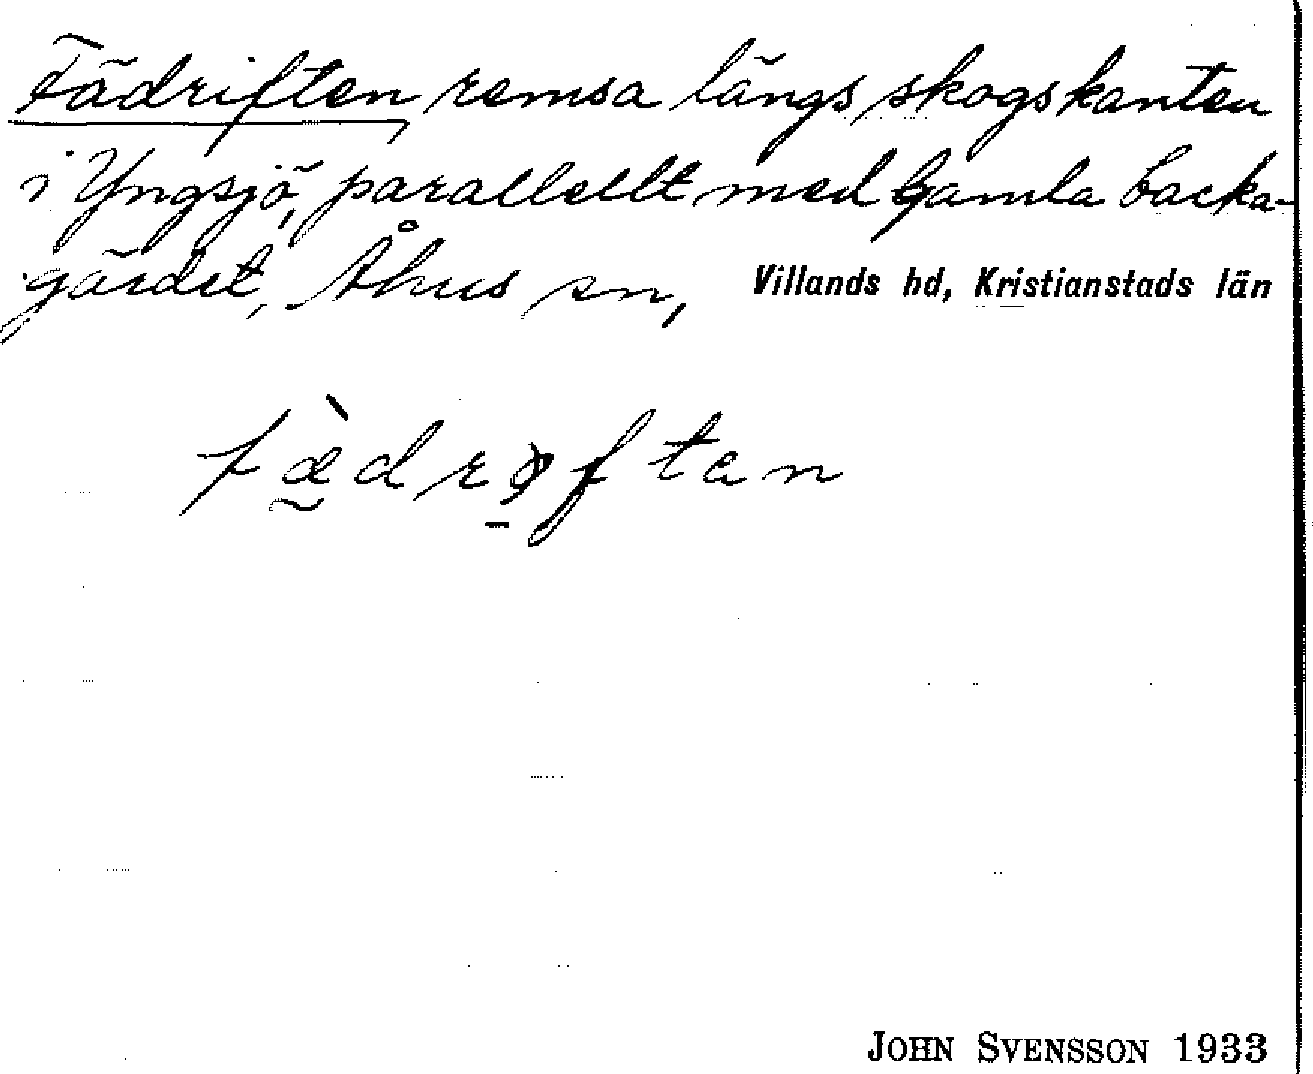 Fädriften, remsa längs skogskanten
i Yngsjö, parallellt med Gamla backa-
gärdet, Åhus sn, Villands hd, Kristianstads län
JOHN SVENSSON 1933